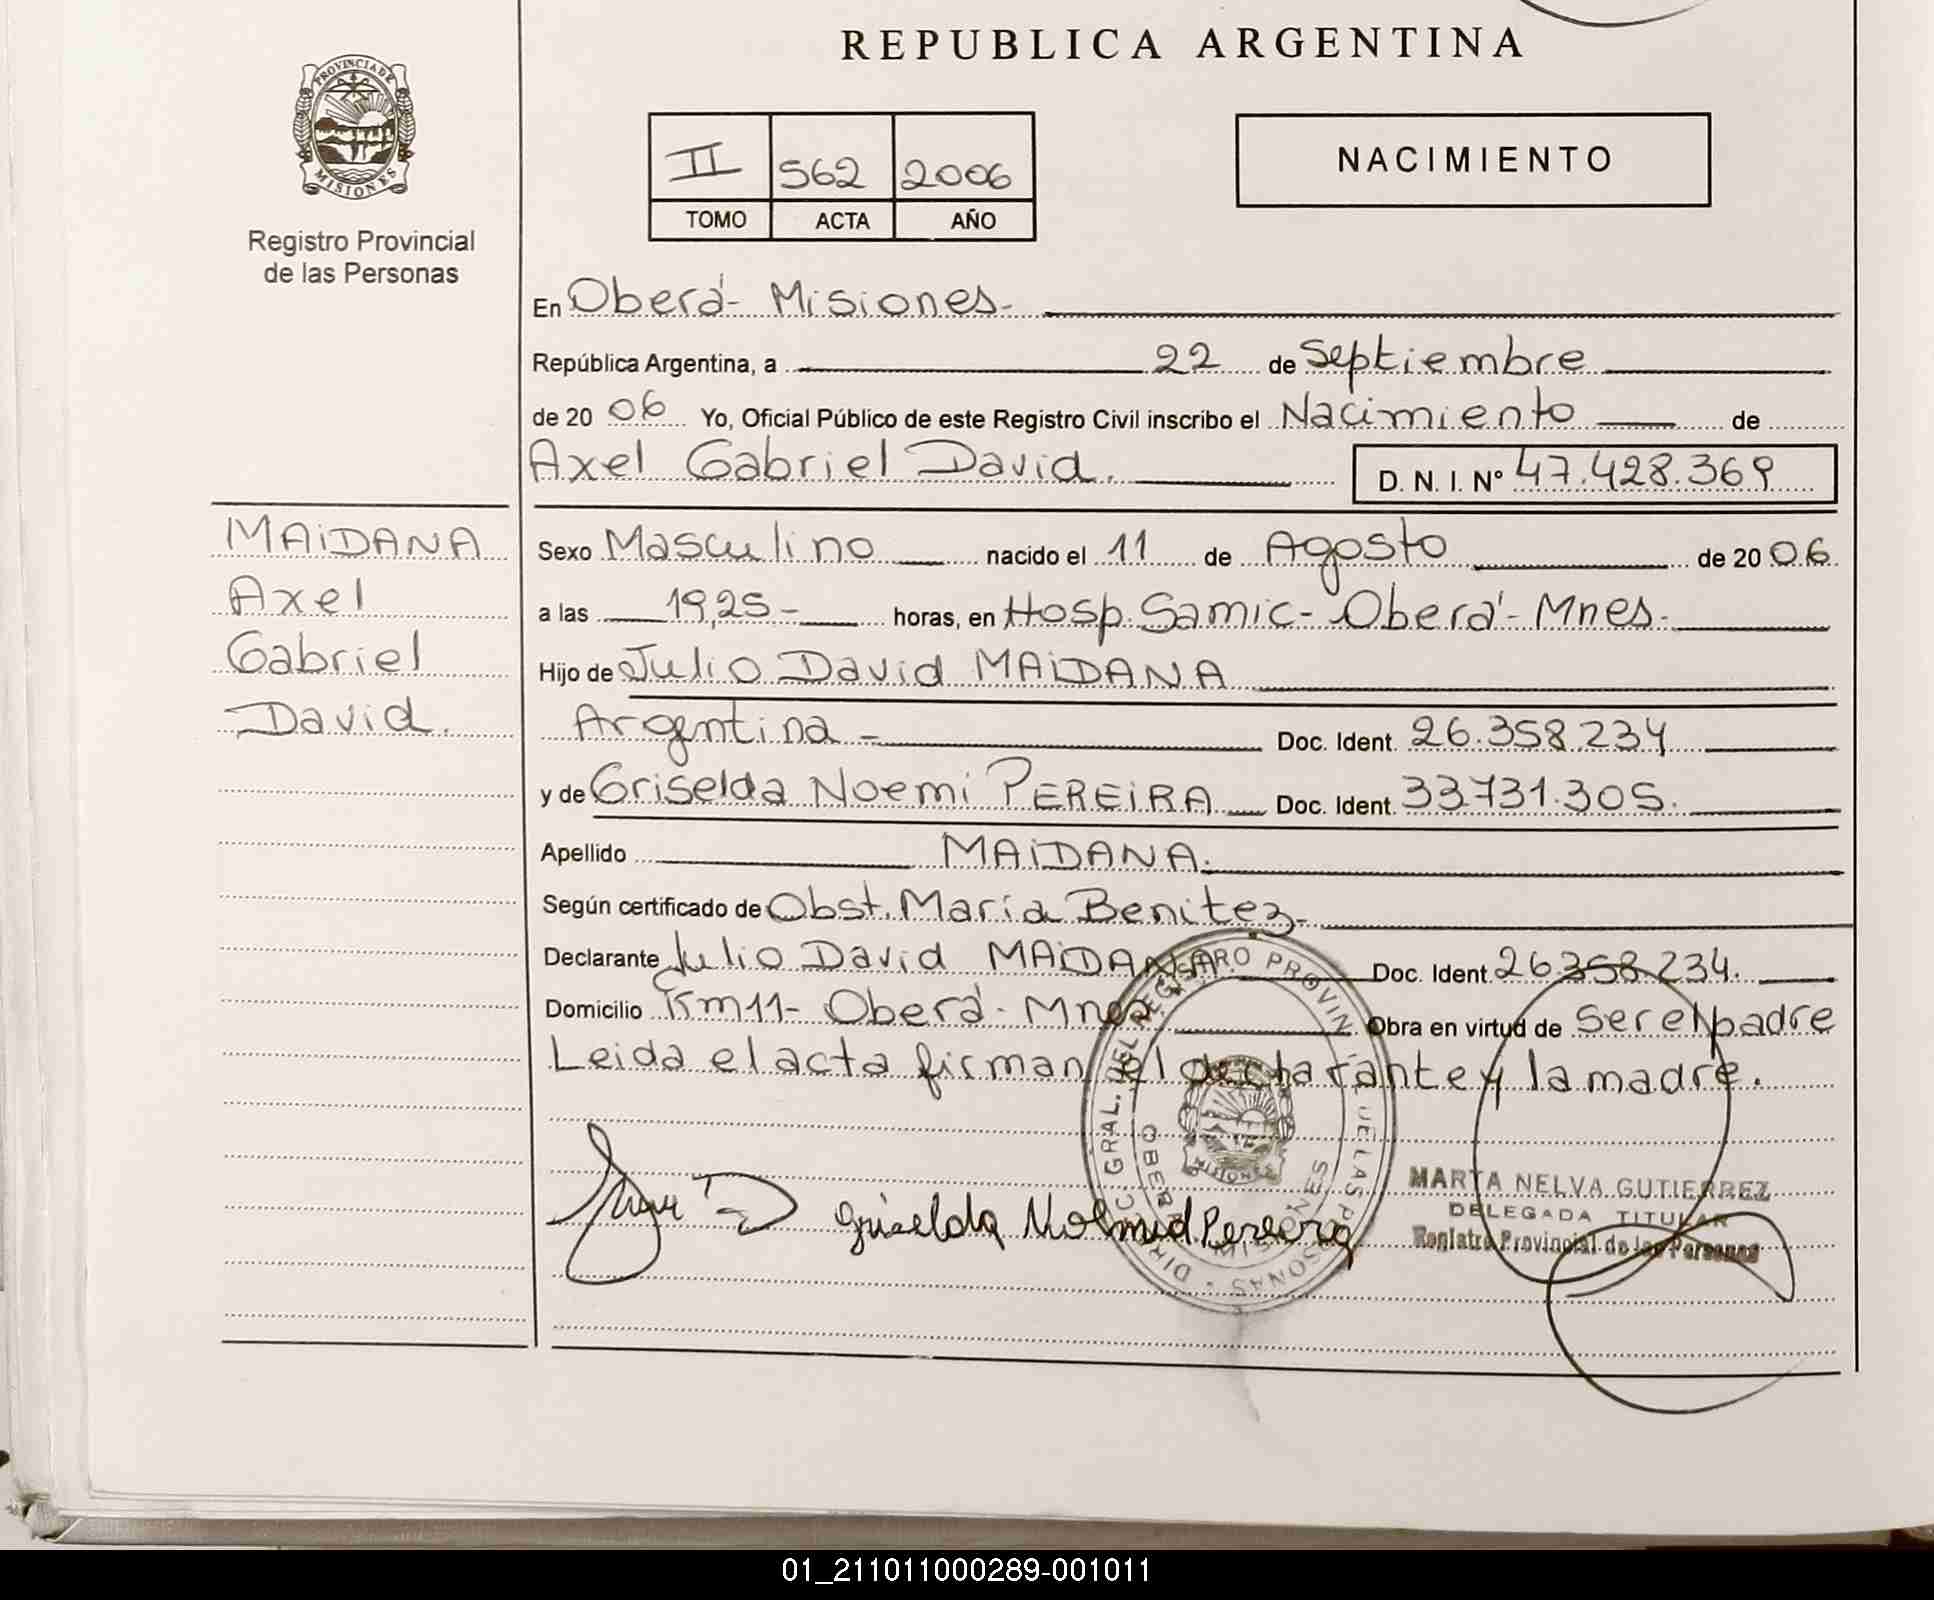 REPUBLICA ARGENTINA
PROVINCIA DE
MISIONES
Registro Provincial
de las Personas
II 562 2006
TOMO ACTA AÑO
NACIMIENTO
En Oberá- Misiones-
República Argentina, a 22 de Septiembre
de 20 06 Yo, Oficial Público de este Registro Civil inscribo el Nacimiento de
Axel Gabriel David. D. N. I. Nº 47.428.369
MAiDANA
Axel
Gabriel
David.
Sexo Masculino nacido el 11 de Agosto de 20 06
a las 19,25- horas, en Hosp. Samic- Oberá- Mnes.
Hijo de Julio David MAiDANA
Argentina - Doc. Ident. 26.358.234
y de Griselda Noemi PEREiRA Doc. Ident. 33.731.305.
Apellido MAiDANA.
Según certificado de Obst. María Benitez-
Declarante Julio David MAiDANA Doc. Ident. 26.358.234.
Domicilio Km 11- Oberá- Mnes. Obra en virtud de ser el padre
Leida el acta firman el declarante y la madre.
DIRECC. GRAL. DEL REGISTRO PROVINCIAL DE LAS PERSONAS
OBERA MISIONES
MISIONES
Griselda Pereira
MARTA NELVA GUTIERREZ
DELEGADA TITULAR
Registro Provincial de las Personas
01_211011000289-001011